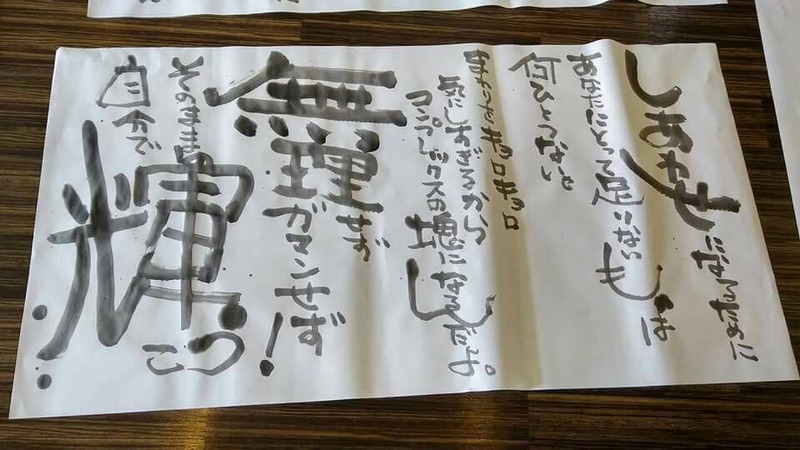 しあわせになるために
あなたにとって足りないものは
何ひとつないよ
まわりをキョロキョロ
気にしすぎるから
コンプレックスの塊になるんだよ。
無理せず
ガマンせず!
そのまま
自分で
輝こう!